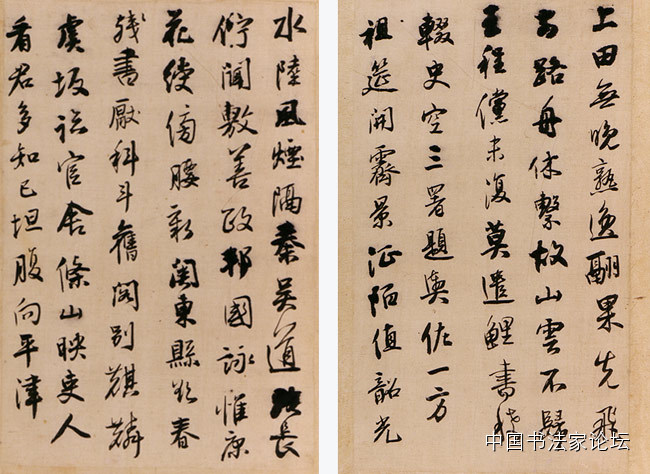 上田無晚熟逸翮果先飛
路舟休繫故山雲不歸
王程儻未復莫遣鯉書稀
輟史空三署題輿佐一方
祖筵開霽景征陌值韶光
水陸風煙隔秦吳道路長
佇聞敷善政邦國詠惟康
花綬傍腰新關東縣欲春
殘書厭科斗舊閣別麒麟
虞坂臨官舍條山映吏人
看君多知己坦腹向平津
中国书法家论坛